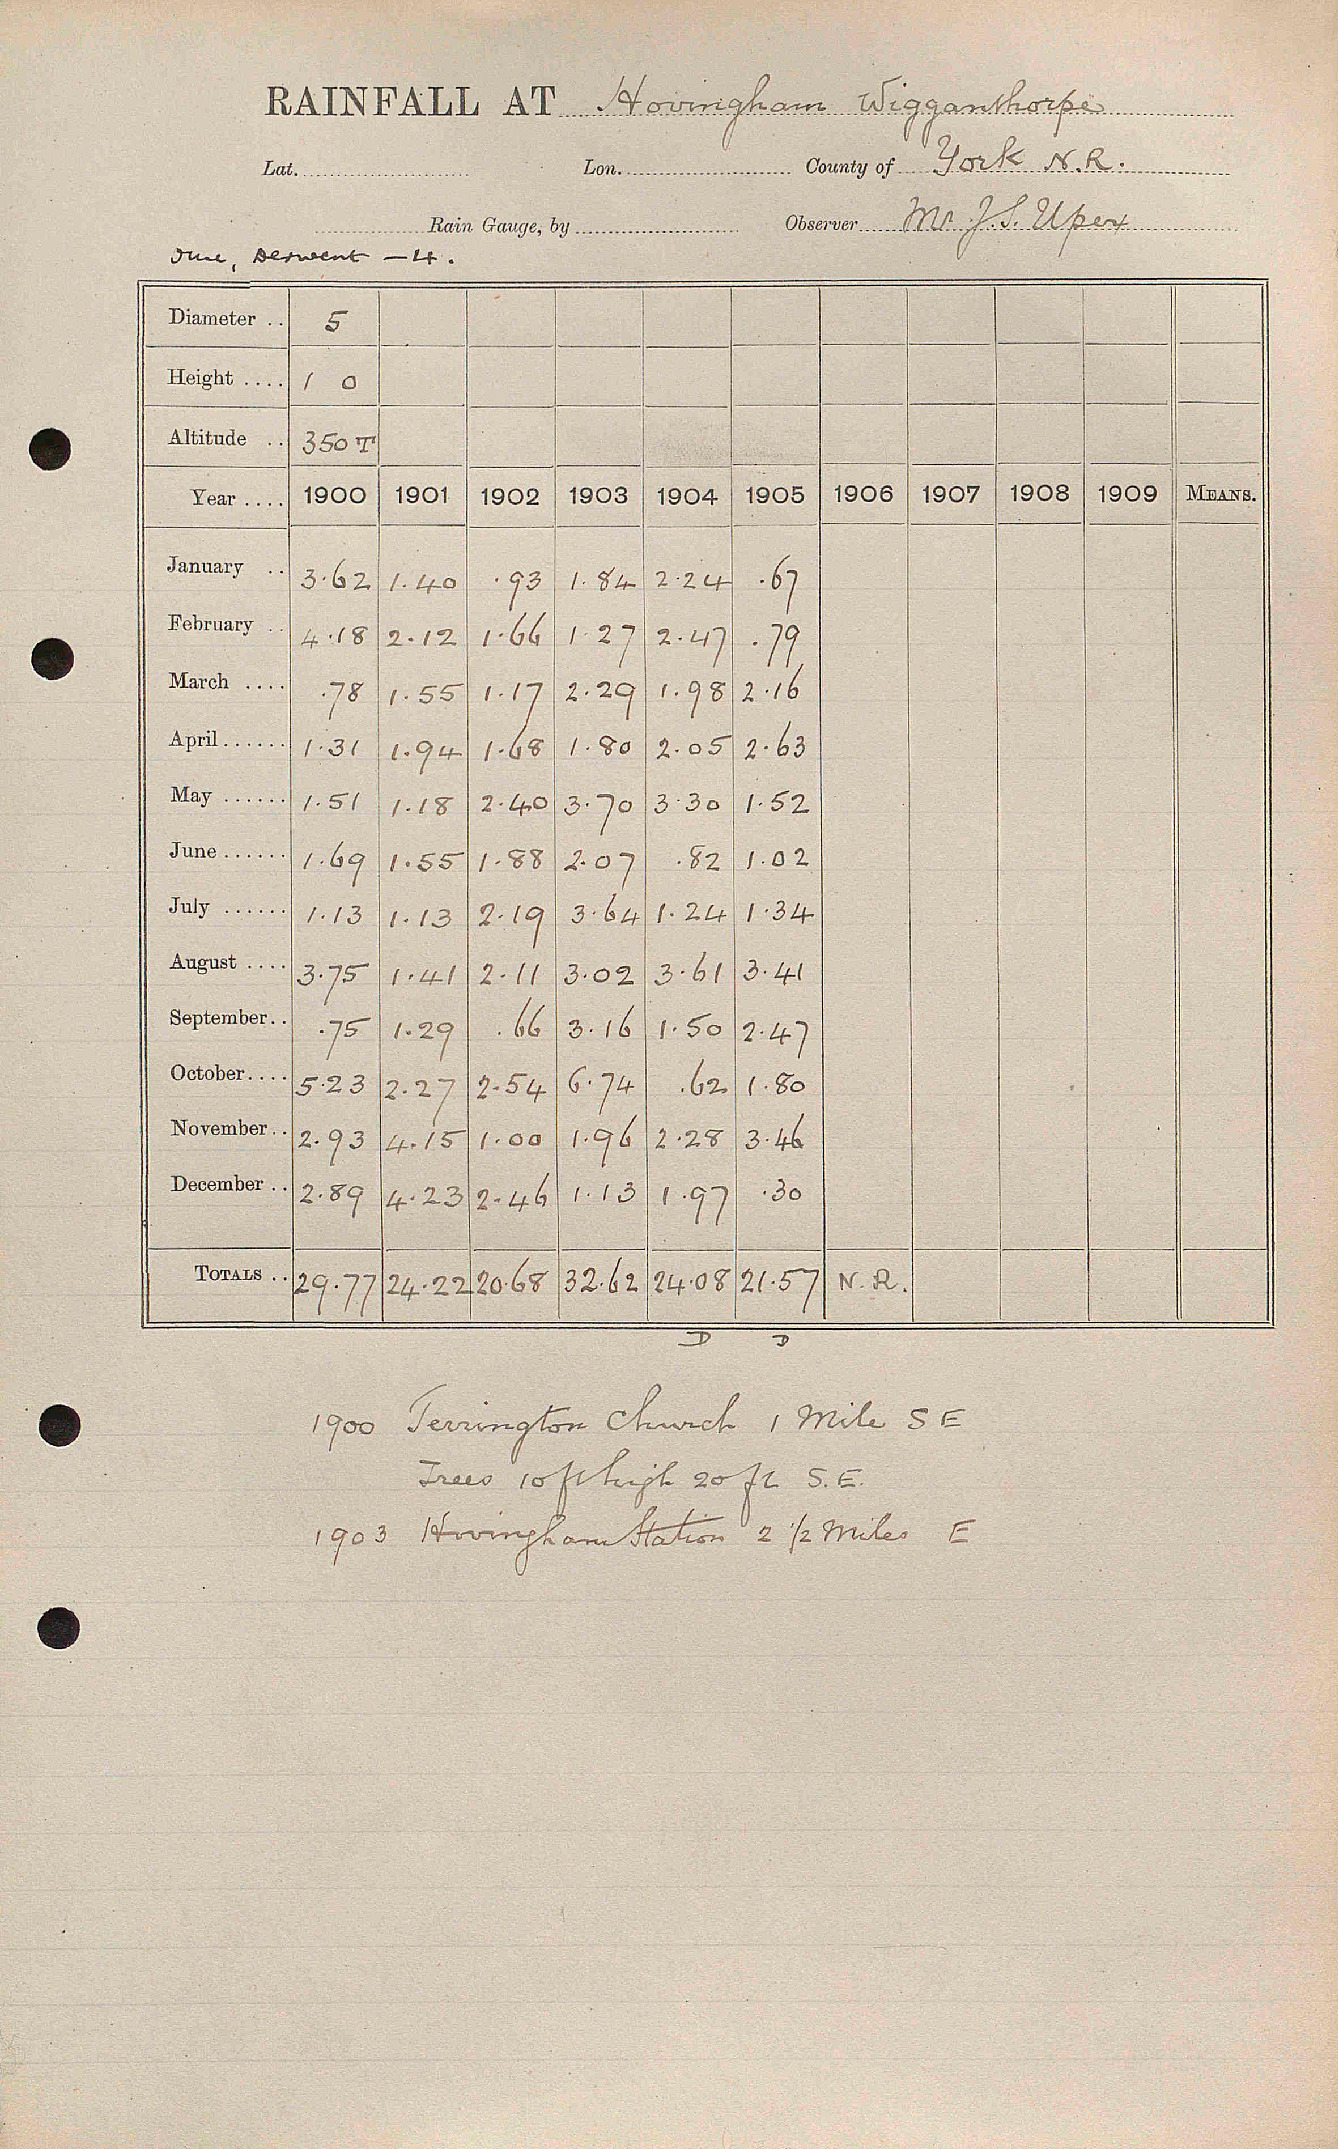 RAINFALL AT Hovingham Wigganthorpe
Lat. Lon. County of York N.R.
Rain Gauge, by Observer Mr J.S. Upex
Derwent - 4.
Diameter .. 5
Height .... 1 0
Altitude .. 350 T
Year .... 1900 1901 1902 1903 1904 1905 1906 1907 1908 1909 MEANS.
January .. 3.62 1.40 .93 1.84 2.24 .67
February .. 4.18 2.12 1.66 1.27 2.47 .79
March .... .78 1.55 1.17 2.29 1.98 2.16
April ...... 1.31 1.94 1.68 1.80 2.05 2.63
May ...... 1.51 1.18 2.40 3.70 3.30 1.52
June ...... 1.69 1.55 1.88 2.07 .82 1.02
July ...... 1.13 1.13 2.19 3.64 1.24 1.34
August .... 3.75 1.41 2.11 3.02 3.61 3.41
September .. .75 1.29 .66 3.16 1.50 2.47
October .... 5.23 2.27 2.54 6.74 .62 1.80
November .. 2.93 4.15 1.00 1.96 2.28 3.46
December .. 2.89 4.23 2.46 1.13 1.97 .30
TOTALS .. 29.77 24.22 20.68 32.62 24.08 21.57 N.R.
D D
1900 Terrington Church 1 Mile S E
Trees 10 ft high 20 ft S.E.
1903 Hovingham Station 2 1/2 Miles E